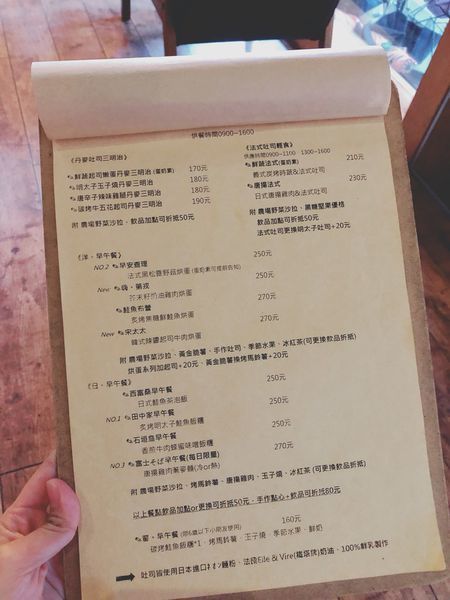 供餐時間0900~1600
《丹麥吐司三明治》
鮮蔬起司嫩蛋丹麥三明治 (蛋奶素) 170元
明太子玉子燒丹麥三明治 180元
唐辛子辣味雞腿丹麥三明治 180元
碳烤牛五花起司丹麥三明治 190元
附 農場野菜沙拉, 飲品加點可折抵50元
《法式吐司輕食》
供應時間0900~1100 1300~1600
鮮蔬法式(蛋奶素) 210元
義式炭烤時蔬&法式吐司
唐揚法式 230元
日式唐揚雞肉&法式吐司
附 農場野菜沙拉、黑糖堅果優格
飲品加點可折抵50元
法式吐司更換明太子吐司+20元
《洋．早午餐》
NO.2 早安查理 250元
法式黑松露野菇烘蛋 (蛋奶素可提前告知)
New 嗨．第戎 250元
芥末籽奶油雞肉烘蛋
鮭魚布蕾 270元
炙烤焦糖鮮鮭魚烘蛋
New 宋太太 270元
韓式辣醬起司牛肉烘蛋
附 農場野菜沙拉、黃金脆薯、手作吐司、季節水果、冰紅茶(可更換飲品折抵)
烘蛋系列加起司+20元、黃金脆薯換烤馬鈴薯+20元
《日．早午餐》
西富桑早午餐 250元
日式鮭魚茶泡飯
NO.1 田中家早午餐 250元
炙烤明太子鮭魚飯糰
石垣島早午餐 250元
香煎牛肉蜂蜜味噌飯糰
NO.3 富士そば早午餐(每日限量) 270元
唐揚雞肉蕎麥麵(冷or熱)
附 農場野菜沙拉、烤馬鈴薯、唐揚雞肉、玉子燒、冰紅茶 (可更換飲品折抵)
以上餐點飲品加點or更換可折抵50元，手作點心+飲品可折抵80元
蜜．早午餐 (限6歲以下小朋友使用) 160元
碳烤鮭魚飯糰*1、烤馬鈴薯、玉子燒、季節水果、鮮奶
吐司皆使用日本進口ﾈｵﾝ麵粉、法國Elle & Vire(鐵塔牌)奶油、100%鮮乳製作